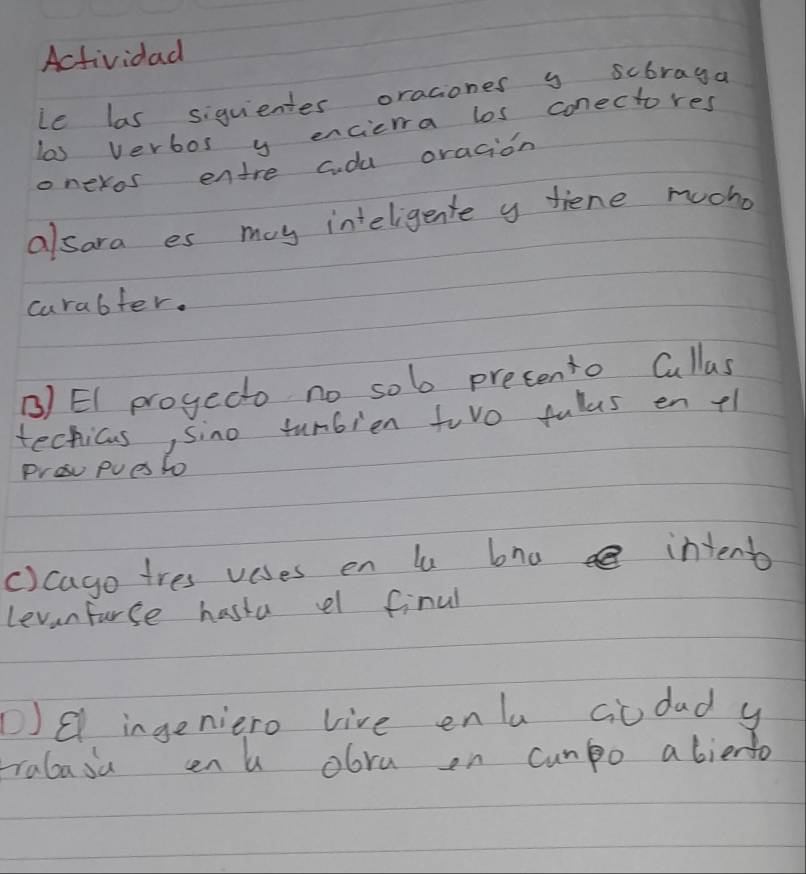 Actividad
le las siguientes oraciones y scbraya
los verbos y encierra los conectores
onexos entre cada oración
a) sara es muy inteligente y tiene mucho
carabter.
B) El proyecto no solo presento Callas
techicas, sino tambien tuvo fallas en el
presupuesto
c) cayo tres veses en la bna intento
levantarse hasta el final
D) El ingeniero vive en la ciudad y
trabaja en la obra en canpo abierto